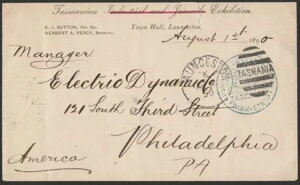 Tasmanian Industrial and Juvenile Exhibition.
S. J. SUTTON, Hon. Sec.
HERBERT A. PERCY, Secretary.
Town Hall, Launceston,
August 1st 1890
Manager
LAUNCESTON
TASMANIA
Electric Dynamic Co
121 South Third Street
Philadelphia
PA
America